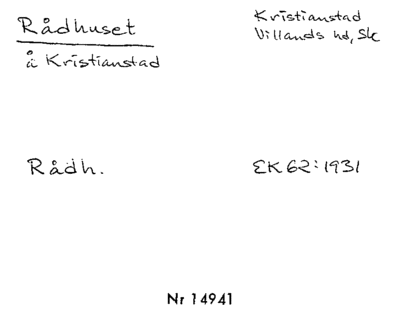 Rådhuset
å Kristianstad
Kristianstad
Villands hd, Sk
Rådh.
EK 62:1931
Nr 14941